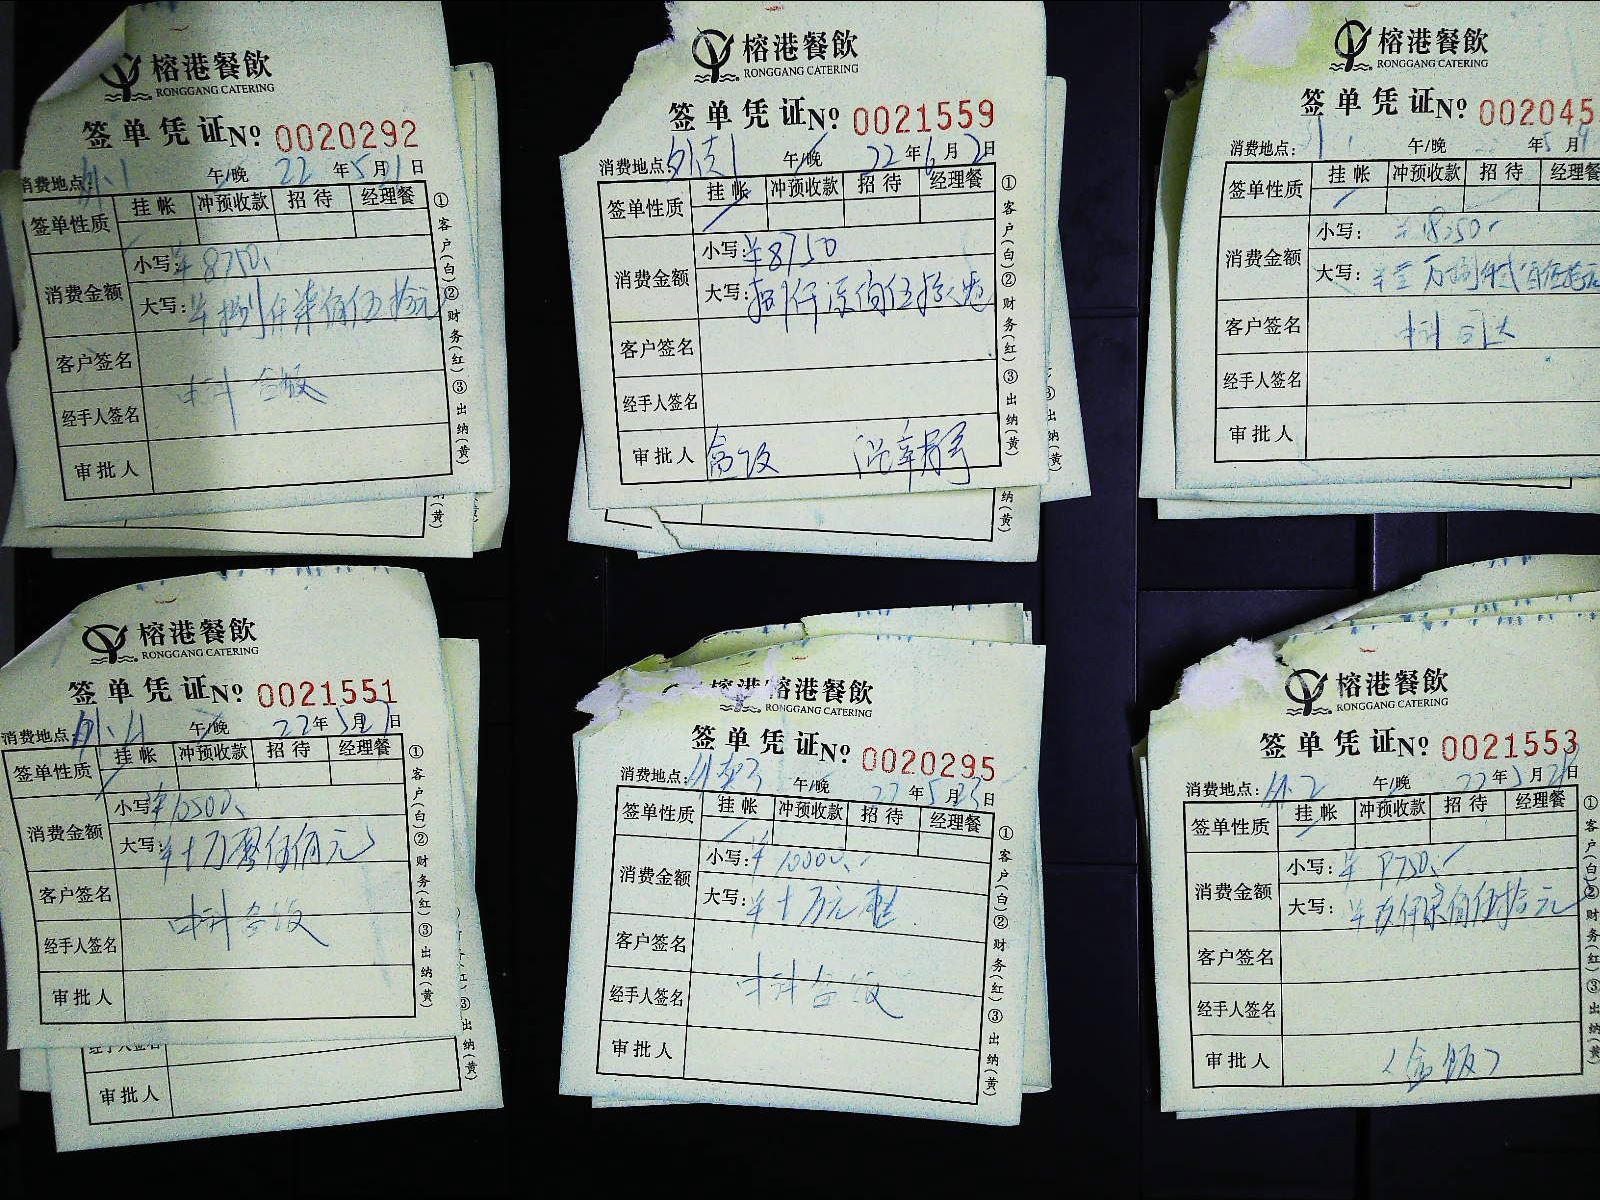 榕港餐飲
RONGGANG CATERING
签单凭证 № 0020292
消费地点: 外1 午/晚 22年5月 日
签单性质 挂帐 冲预收款 招待 经理餐
消费金额 小写: ¥8750.
大写: ¥捌仟柒佰伍拾元
客户签名
中科 盒饭
经手人签名
审批人
①客户(白)②财务(红)③出纳(黄)
榕港餐飲
RONGGANG CATERING
签单凭证 № 0021559
消费地点: 午/晚 22年6月2日
签单性质 挂帐 冲预收款 招待 经理餐
消费金额 小写: ¥8750
大写: 捌仟柒佰伍拾元
客户签名
经手人签名
审批人 盒饭
①客户(白)②财务(红)③出纳(黄)
榕港餐飲
RONGGANG CATERING
签单凭证 № 002045
消费地点: 午/晚 年5月
签单性质 挂帐 冲预收款 招待 经理餐
消费金额 小写: ¥18250
大写: ¥壹万捌仟贰佰伍拾元
客户签名 中科
经手人签名
审批人
榕港餐飲
RONGGANG CATERING
签单凭证 № 0021551
消费地点: 外 午/晚 22年5月 日
签单性质 挂帐 冲预收款 招待 经理餐
消费金额 小写: ¥10500.
大写: ¥十万零伍佰元
客户签名
中科 盒饭
经手人签名
审批人
①客户(白)②财务(红)③出纳(黄)
经手人签名
审批人
榕港餐飲
RONGGANG CATERING
签单凭证 № 0020295
消费地点: 午/晚 22年5月23日
签单性质 挂帐 冲预收款 招待 经理餐
消费金额 小写: ¥10000.
大写: ¥十万元整
客户签名
中科 盒饭
经手人签名
审批人
①客户(白)②财务(红)③出纳(黄)
榕港餐飲
RONGGANG CATERING
签单凭证 № 0021553
消费地点: 外2 午/晚 22年5月 日
签单性质 挂帐 冲预收款 招待 经理餐
消费金额 小写: ¥9750.
大写: ¥玖仟柒佰伍拾元
客户签名
经手人签名
审批人 (盒饭)
①客户(白)②财务(红)③出纳